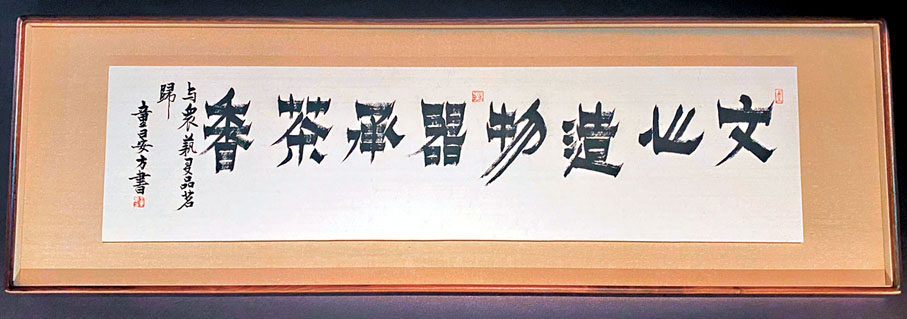 文心造物器承茶香
与衆蓺友品茗
歸
童晏方書